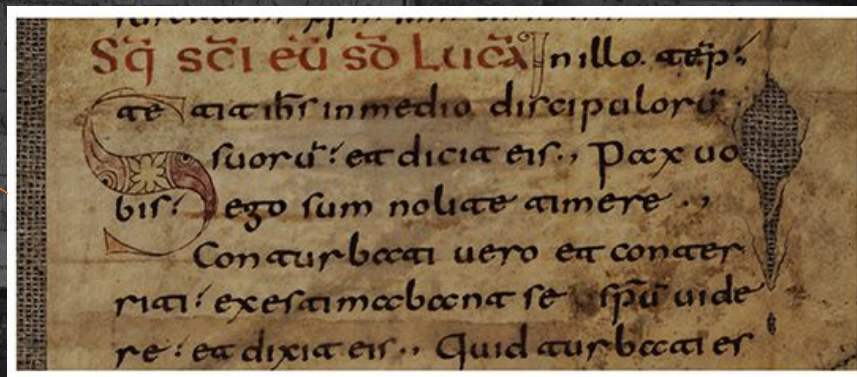 Sq̄ sc̄i eū sd̄ Lucā In illo tēp:
Stetit ih̄s in medio discipulorū
suorū: et dicit eis., Pax uo
bis: ego sum nolite timere .,
Conturbati uero et conter
riti: exestimabant se sp̄ū uide
re: et dixit eis., Quid turbati es